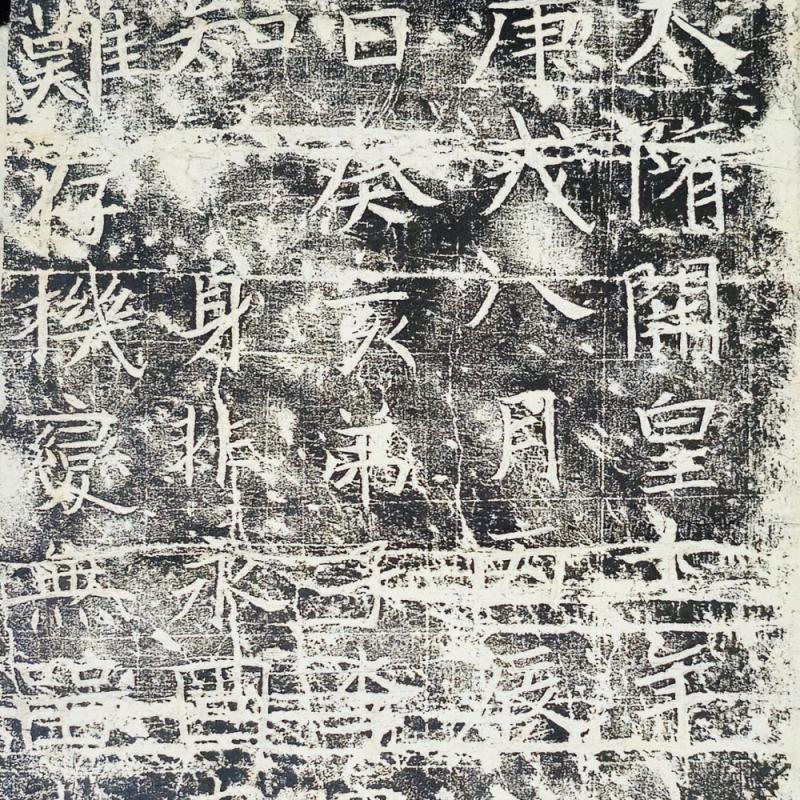 大隋開皇十年
庚戌八月丙辰
日癸亥弟子李
知身非永固
難存機無